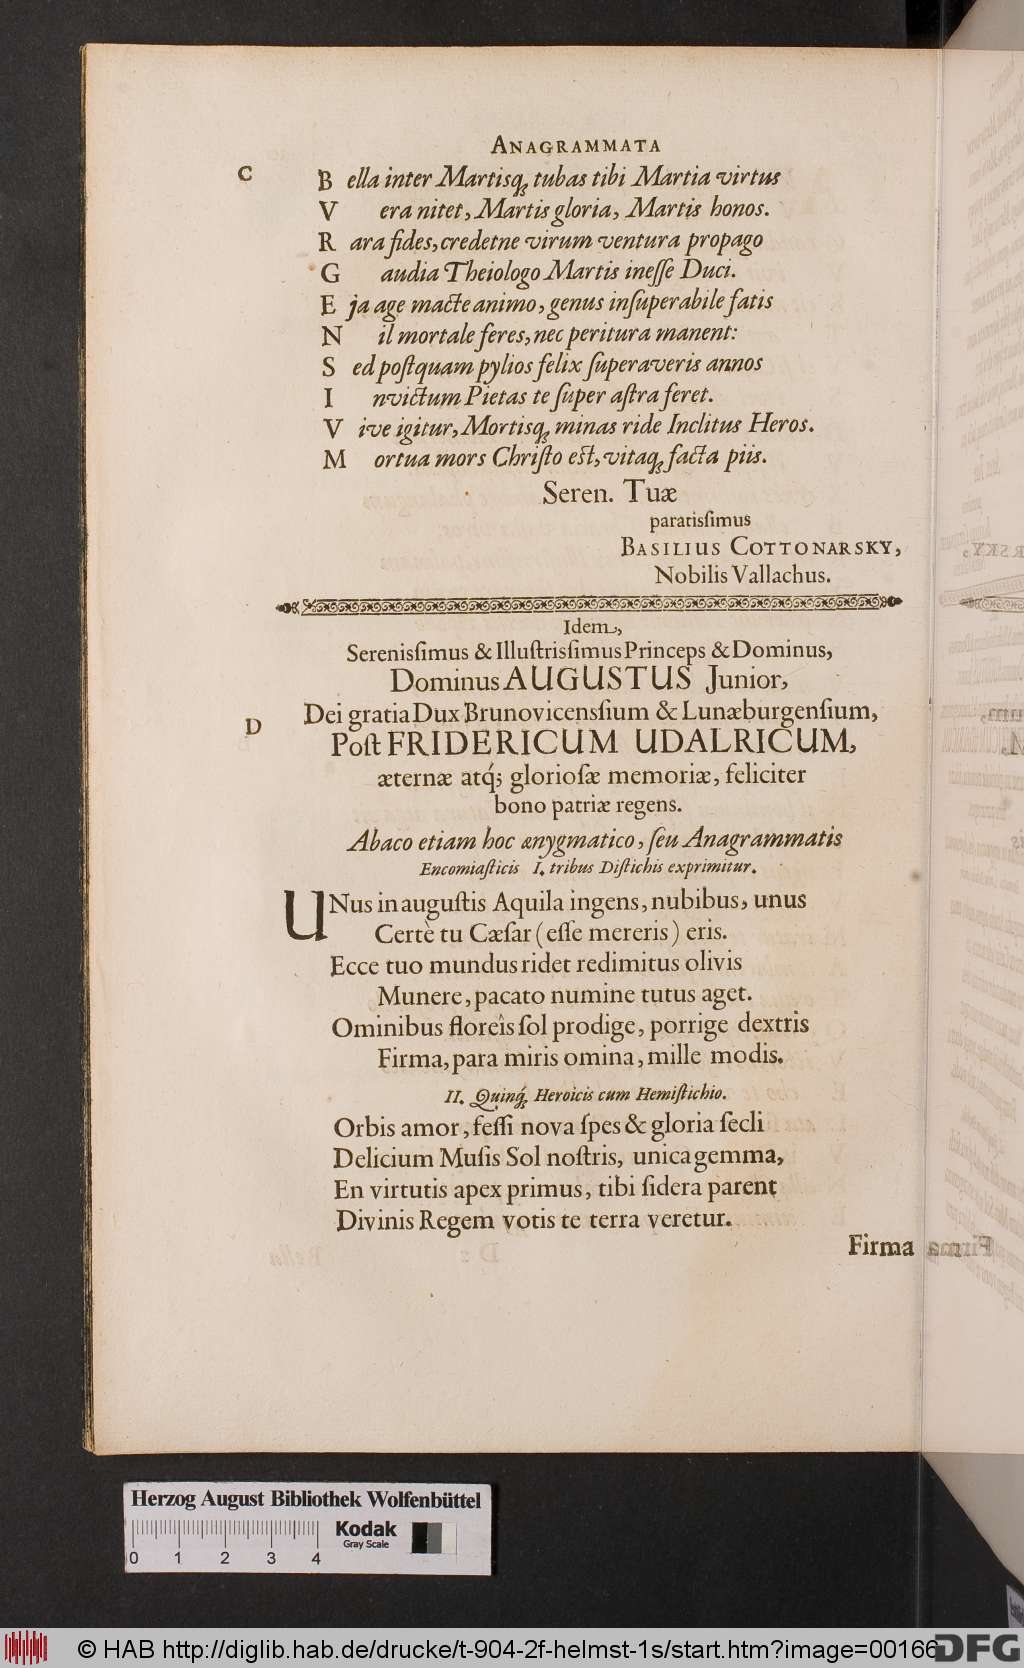 ANAGRAMMATA
C
B ella inter Martisq; tubas tibi Martia virtus
V era nitet, Martis gloria, Martis honos.
R ara fides, credetne virum ventura propago
G audia Theiologo Martis ineſſe Duci.
E ja age macte animo, genus inſuperabile fatis
N il mortale feres, nec peritura manent:
S ed poſtquam pylios felix ſuperaveris annos
I nvictum Pietas te ſuper aſtra feret.
V ive igitur, Mortisq; minas ride Inclitus Heros.
M ortua mors Chriſto eſt, vitaq; facta piis.
Seren. Tuæ
paratisſimus
BASILIUS COTTONARSKY,
Nobilis Vallachus.
Idem,
Serenisſimus & Illuſtrisſimus Princeps & Dominus,
Dominus AUGUSTUS Junior,
Dei gratia Dux Brunovicensſium & Lunæburgenſium,
D
Poſt FRIDERICUM UDALRICUM,
æternæ atq́; glorioſæ memoriæ, feliciter
bono patriæ regens.
Abaco etiam hoc ænygmatico, ſeu Anagrammatis
Encomiaſticis I. tribus Diſtichis exprimitur.
UNus in auguſtis Aquila ingens, nubibus, unus
Certè tu Cæſar (eſſe mereris) eris.
Ecce tuo mundus ridet redimitus olivis
Munere, pacato numine tutus aget.
Ominibus floreîs ſol prodige, porrige dextris
Firma, para miris omina, mille modis.
II. Quinq́; Heroicis cum Hemiſtichio.
Orbis amor, feſſi nova ſpes & gloria ſecli
Delicium Muſis Sol noſtris, unica gemma,
En virtutis apex primus, tibi ſidera parent
Divinis Regem votis te terra veretur.
Firma
Herzog August Bibliothek Wolfenbüttel
Kodak
Gray Scale
0 1 2 3 4
© HAB http://diglib.hab.de/drucke/t-904-2f-helmst-1s/start.htm?image=00166
DFG